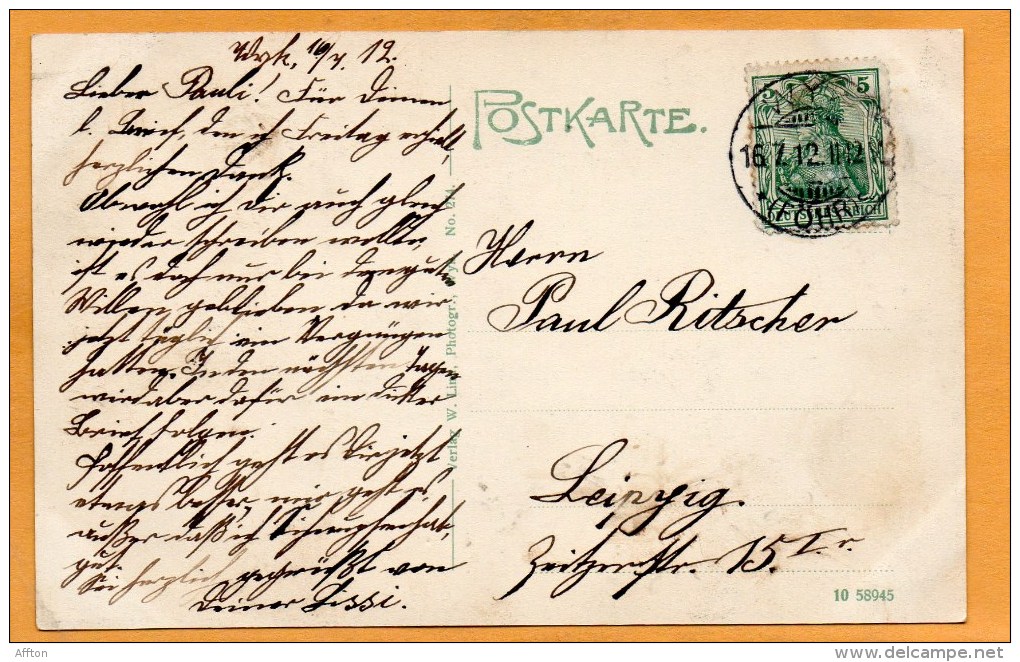 Wyk, 16/7. 12.
Lieber Pauli! Für Deinen
l. Brief, den ich Freitag erhielt,
herzlichen Dank.
Obwohl ich Dir auch gleich
wieder schreiben wollte,
ist es doch nur bei dem gut.
Willen geblieben da wir
jetzt täglich ein Vergnügen
hatten. In den nächsten Tagen
wird aber dafür ein dicker
Brief folgen.
Hoffentlich geht es Dir jetzt
etwas besser, mir geht es
außer daß ich Schnupfen hab,
gut.
Sei herzlich gegrüßt von
Deiner Lissi.
Verlag W. Lind, Photogr., Wyk. No.
POSTKARTE.
5 5
16.7.12.11-12
FÖHR
Herrn
Paul Ritscher
Leipzig.
Zeitzerstr. 15 I. r.
10 58945
Affton
http://www.delcampe.net